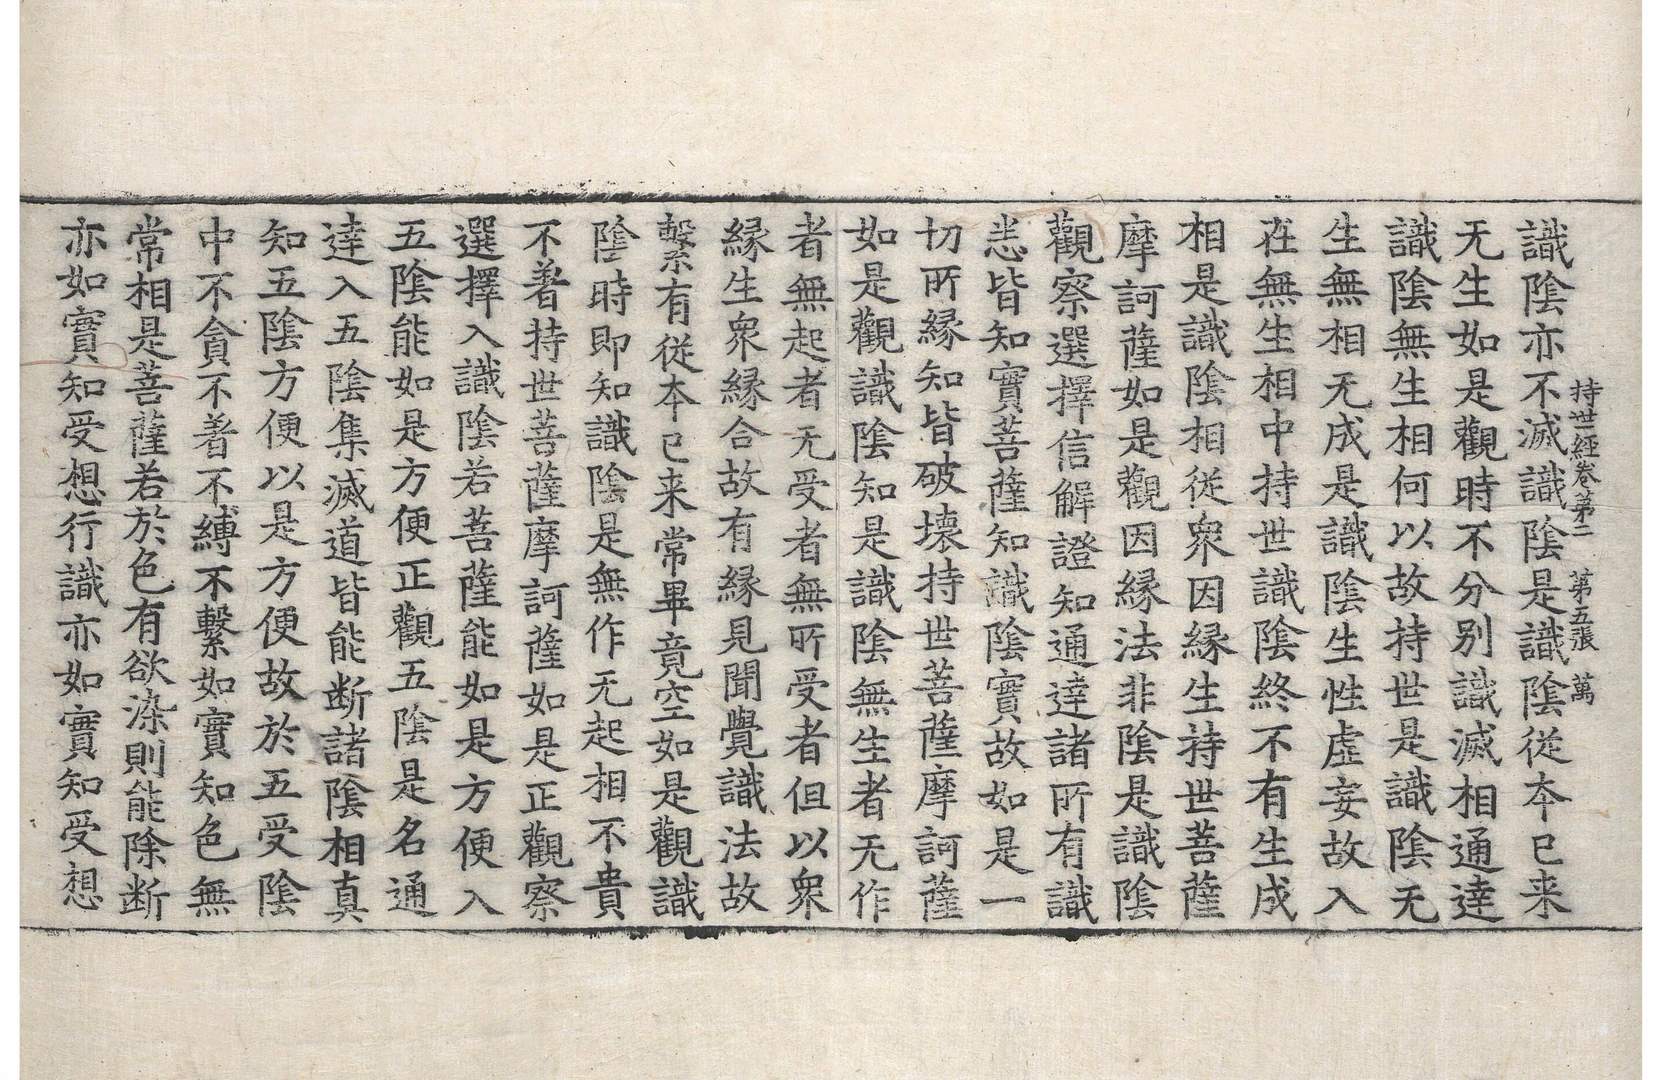 持世經卷第二 第五張 萬
識陰亦不滅識陰是識陰從本已来
无生如是觀時不分別識滅相通達
識陰無生相何以故持世是識陰无
生無相无成是識陰生性虛妄故入
在無生相中持世識陰終不有生成
相是識陰相從衆因緣生持世菩薩
摩訶薩如是觀因緣法非陰是識陰
觀察選擇信解證知通達諸所有識
悉皆知實菩薩知識陰實故如是一
切所緣知皆破壞持世菩薩摩訶薩
如是觀識陰知是識陰無生者无作
者無起者无受者無所受者但以衆
緣生衆緣合故有緣見聞覺識法故
繫有從本已来常畢竟空如是觀識
陰時即知識陰是無作无起相不貴
不著持世菩薩摩訶薩如是正觀察
選擇入識陰若菩薩能如是方便入
五陰能如是方便正觀五陰是名通
達入五陰集滅道皆能斷諸陰相真
知五陰方便以是方便故於五受陰
中不貪不著不縛不繫如實知色無
常相是菩薩若於色有欲染則能除斷
亦如實知受想行識亦如實知受想